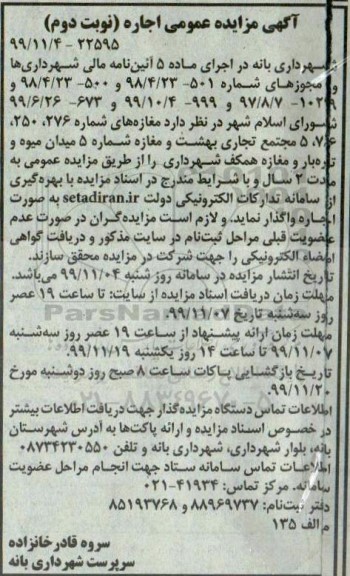 آگهی مزایده عمومی اجاره (نوبت دوم)
۲۲۵۹۵ - ۹۹/۱۱/۴
شهرداری بانه در اجرای ماده ۵ آئین‌نامه مالی شهرداری‌ها
و مجوزهای شماره ۵۰۱- ۹۸/۴/۲۳ و ۵۰۰- ۹۸/۴/۲۳ و
۱۰۲۹- ۹۷/۸/۷ و ۹۹۹- ۹۹/۱۰/۴ و ۶۷۳- ۹۹/۶/۲۶
شورای اسلام شهر در نظر دارد مغازه‌های شماره ۲۷۶، ۲۵۰،
۷،۶، ۵ مجتمع تجاری بهشت و مغازه شماره ۵ میدان میوه و
تره‌بار و مغازه همکف شهرداری را از طریق مزایده عمومی به
مدت ۲ سال و با شرایط مندرج در اسناد مزایده با بهره‌گیری
از سامانه تدارکات الکترونیکی دولت setadiran.ir به صورت
اجاره واگذار نماید. و لازم است مزایده‌گران در صورت عدم
عضویت قبلی مراحل ثبت‌نام در سایت مذکور و دریافت گواهی
امضاء الکترونیکی را جهت شرکت در مزایده محقق سازند.
تاریخ انتشار مزایده در سامانه روز شنبه ۹۹/۱۱/۰۴ می‌باشد.
مهلت زمان دریافت اسناد مزایده از سایت: تا ساعت ۱۹ عصر
روز سه‌شنبه تاریخ ۹۹/۱۱/۰۷.
مهلت زمان ارائه پیشنهاد از ساعت ۱۹ عصر روز سه‌شنبه
۹۹/۱۱/۰۷ تا ساعت ۱۴ روز یکشنبه ۹۹/۱۱/۱۹
تاریخ بازگشایی پاکات ساعت ۸ صبح روز دوشنبه مورخ
۹۹/۱۱/۲۰.
اطلاعات تماس دستگاه مزایده‌گذار جهت دریافت اطلاعات بیشتر
در خصوص اسناد مزایده و ارائه پاکت‌ها به آدرس شهرستان
بانه، بلوار شهرداری، شهرداری بانه و تلفن ۰۸۷۳۴۲۳۰۵۵۰
اطلاعات تماس سامانه ستاد جهت انجام مراحل عضویت
سامانه. مرکز تماس: ۴۱۹۳۴-۰۲۱
دفتر ثبت‌نام: ۸۸۹۶۹۷۳۷ و ۸۵۱۹۳۷۶۸
م الف ۱۳۵
سروه قادرخانزاده
سرپرست شهرداری بانه